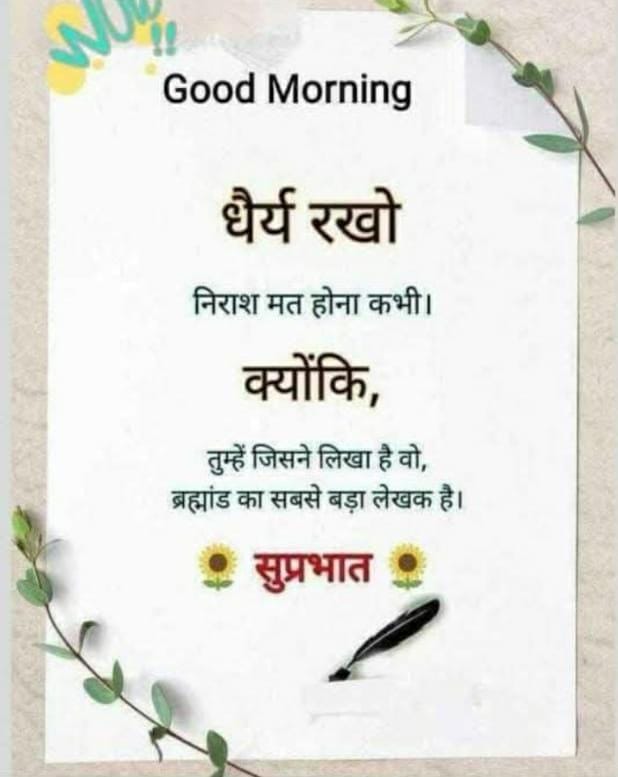 WOW!!
Good Morning
धैर्य रखो
निराश मत होना कभी।
क्योंकि,
तुम्हें जिसने लिखा है वो,
ब्रह्मांड का सबसे बड़ा लेखक है।
सुप्रभात